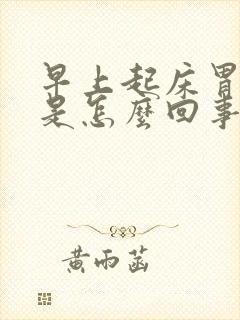 早上起床胃
是怎麼回事
黃雨菡